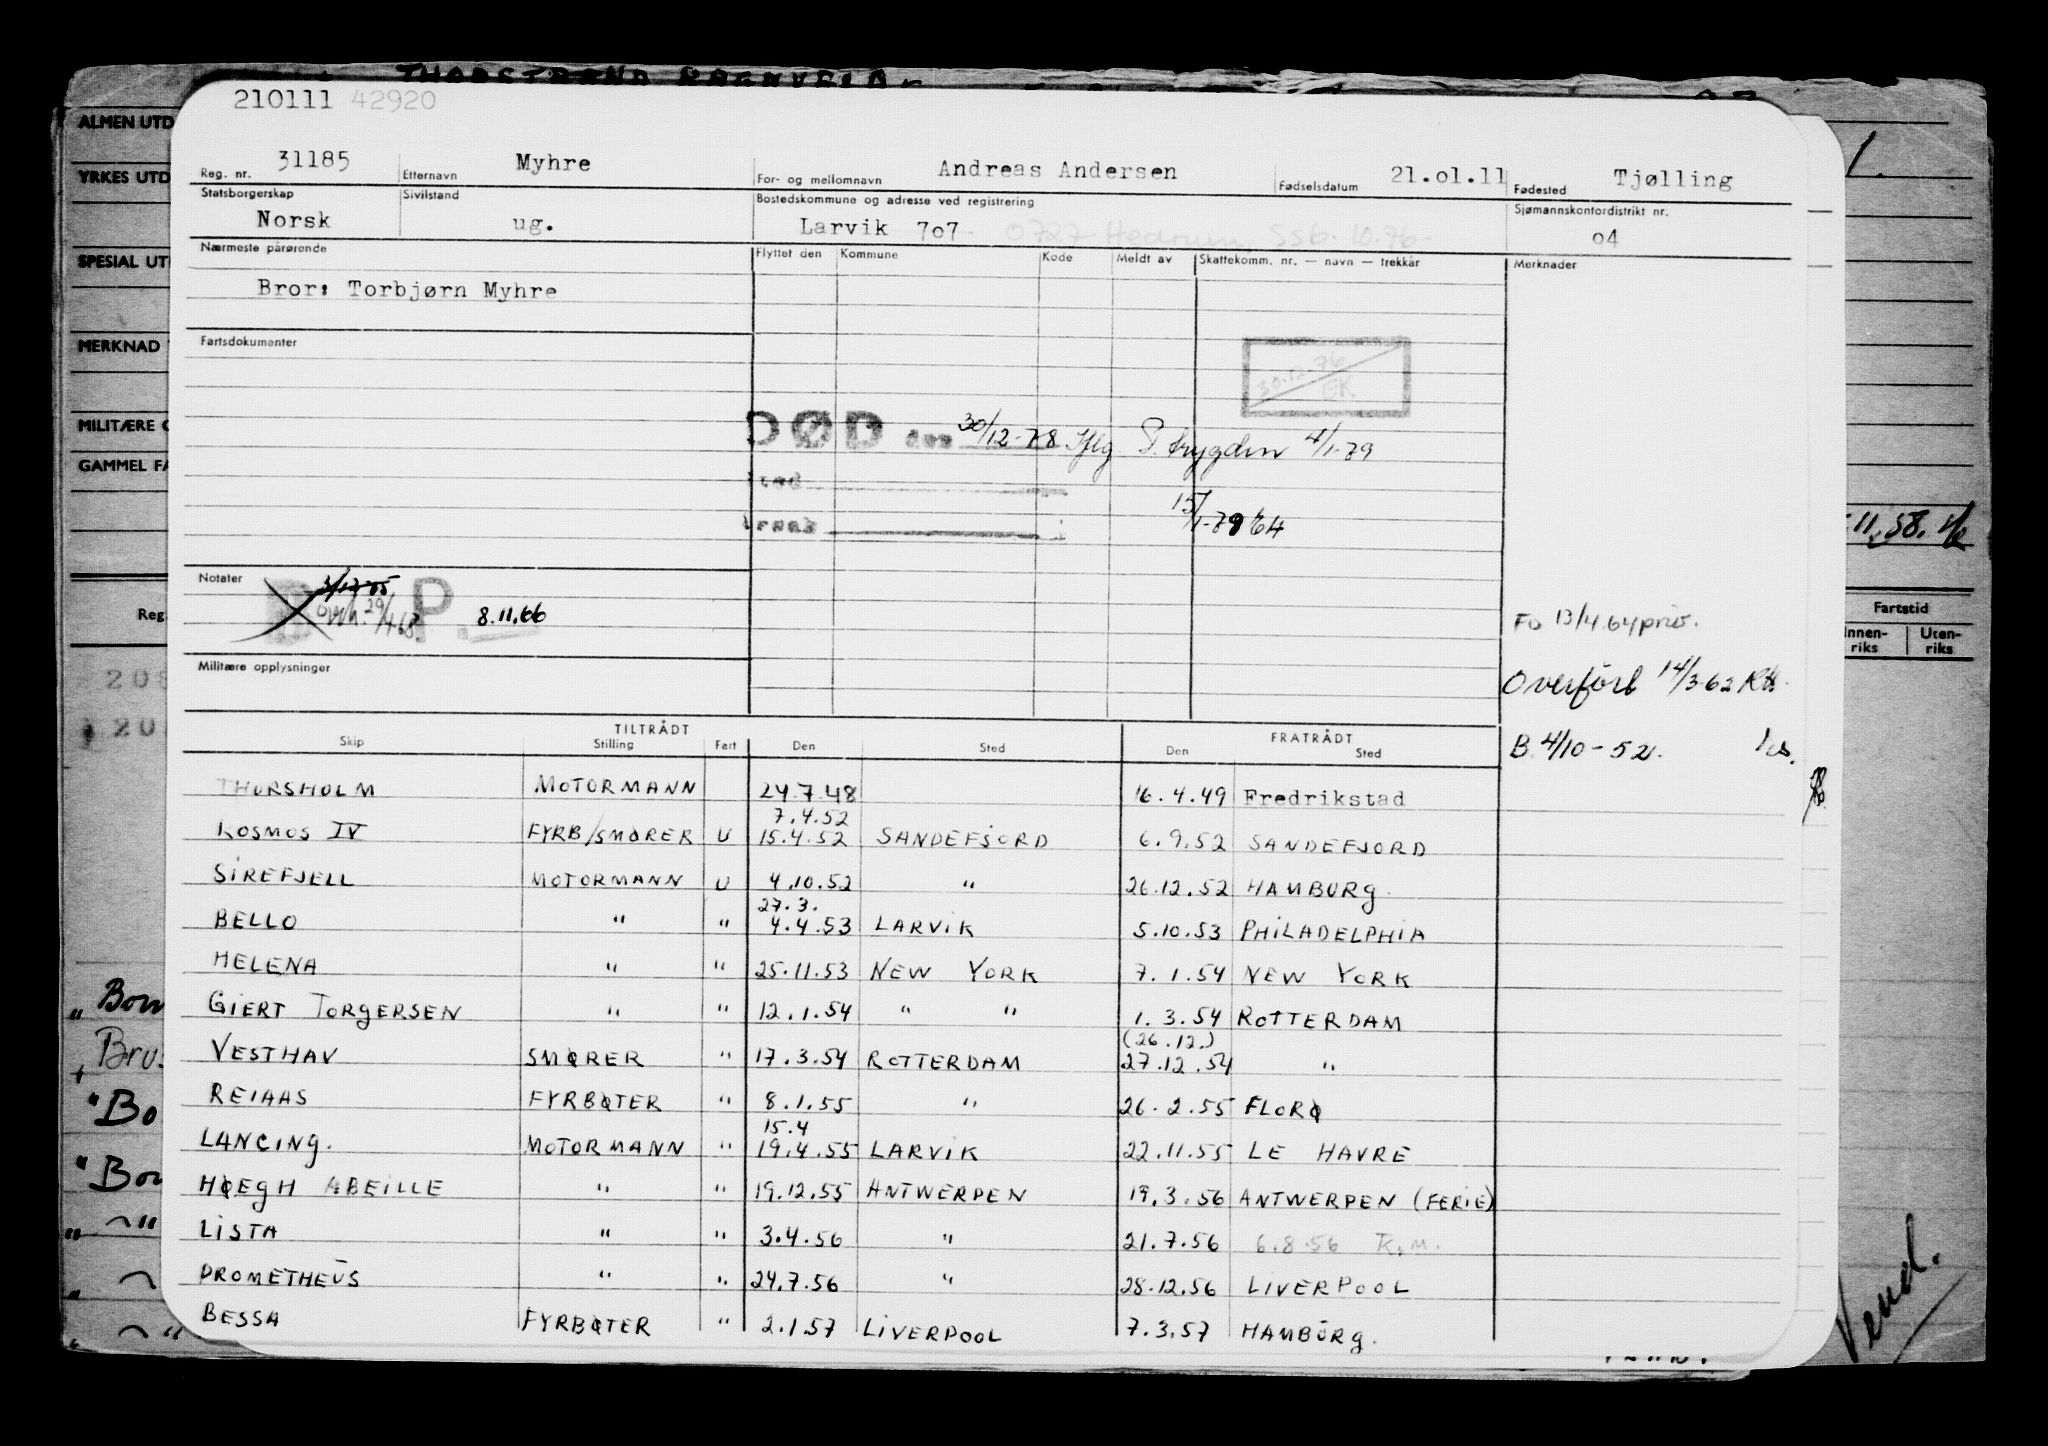 THORSTRAND RAGNVALD
210111 42920
ALMEN UTD
YRKES UTD
SPESIAL UT
MERKNAD
MILITÆRE
GAMMEL FA
Reg. nr. 31185 Etternavn Myhre For- og mellomnavn Andreas Andersen Fødselsdatum 21.01.11 Fødested Tjølling
Statsborgerskap Sivilstand Bostedskommune og adresse ved registrering Sjømannskontordistrikt nr.
Norsk ug. Larvik 707 0727 Hedrum, SSb. 10.76- 04
Nærmeste pårørende Flyttet den Kommune Kode Meldt av Skattekomm. nr. — navn — trekkår Merknader
Bror: Torbjørn Myhre
Fartsdokumenter
30.12.76
EK
DØD den 30/12-78 Iflg S. trygden 4/1-79
Sted
Årsak
15/1-79
Notater
8.11.66
Fo 13/4.64 priv.
Militære opplysninger
Overført 14/3-62
B. 4/10-52.
TILTRÅDT FRATRÅDT
Skip Stilling Fart Den Sted Den Sted
THORSHOLM MOTORMANN 24.7.48 16.4.49 Fredrikstad
7.4.52
KOSMOS IV FYRB/SMØRER U 15.4.52 SANDEFJORD 6.9.52 SANDEFJORD
SIREFJELL MOTORMANN U 4.10.52 " 26.12.52 HAMBURG.
27.3.
BELLO " " 4.4.53 LARVIK 5.10.53 PHILADELPHIA
HELENA " " 25.11.53 NEW YORK 7.1.54 NEW YORK
GIERT TORGERSEN " " 12.1.54 " " 1.3.54 ROTTERDAM
(26.12.)
VESTHAV SMØRER " 17.3.54 ROTTERDAM 27.12.54 "
REIAAS FYRBØTER " 8.1.55 " 26.2.55 FLORØ
15.4
LANCING. MOTORMANN " 19.4.55 LARVIK 22.11.55 LE HAVRE
HØEGH ABEILLE " " 19.12.55 ANTWERPEN 19.3.56 ANTWERPEN (FERIE)
LISTA " " 3.4.56 " 21.7.56 6.8.56 K.M.
PROMETHEUS " " 24.7.56 " 28.12.56 LIVERPOOL
BESSA FYRBØTER " 2.1.57 LIVERPOOL 7.3.57 HAMBURG.
11.58.
Fartstid
Innen-riks Uten-riks
Reg.
208
Vend.